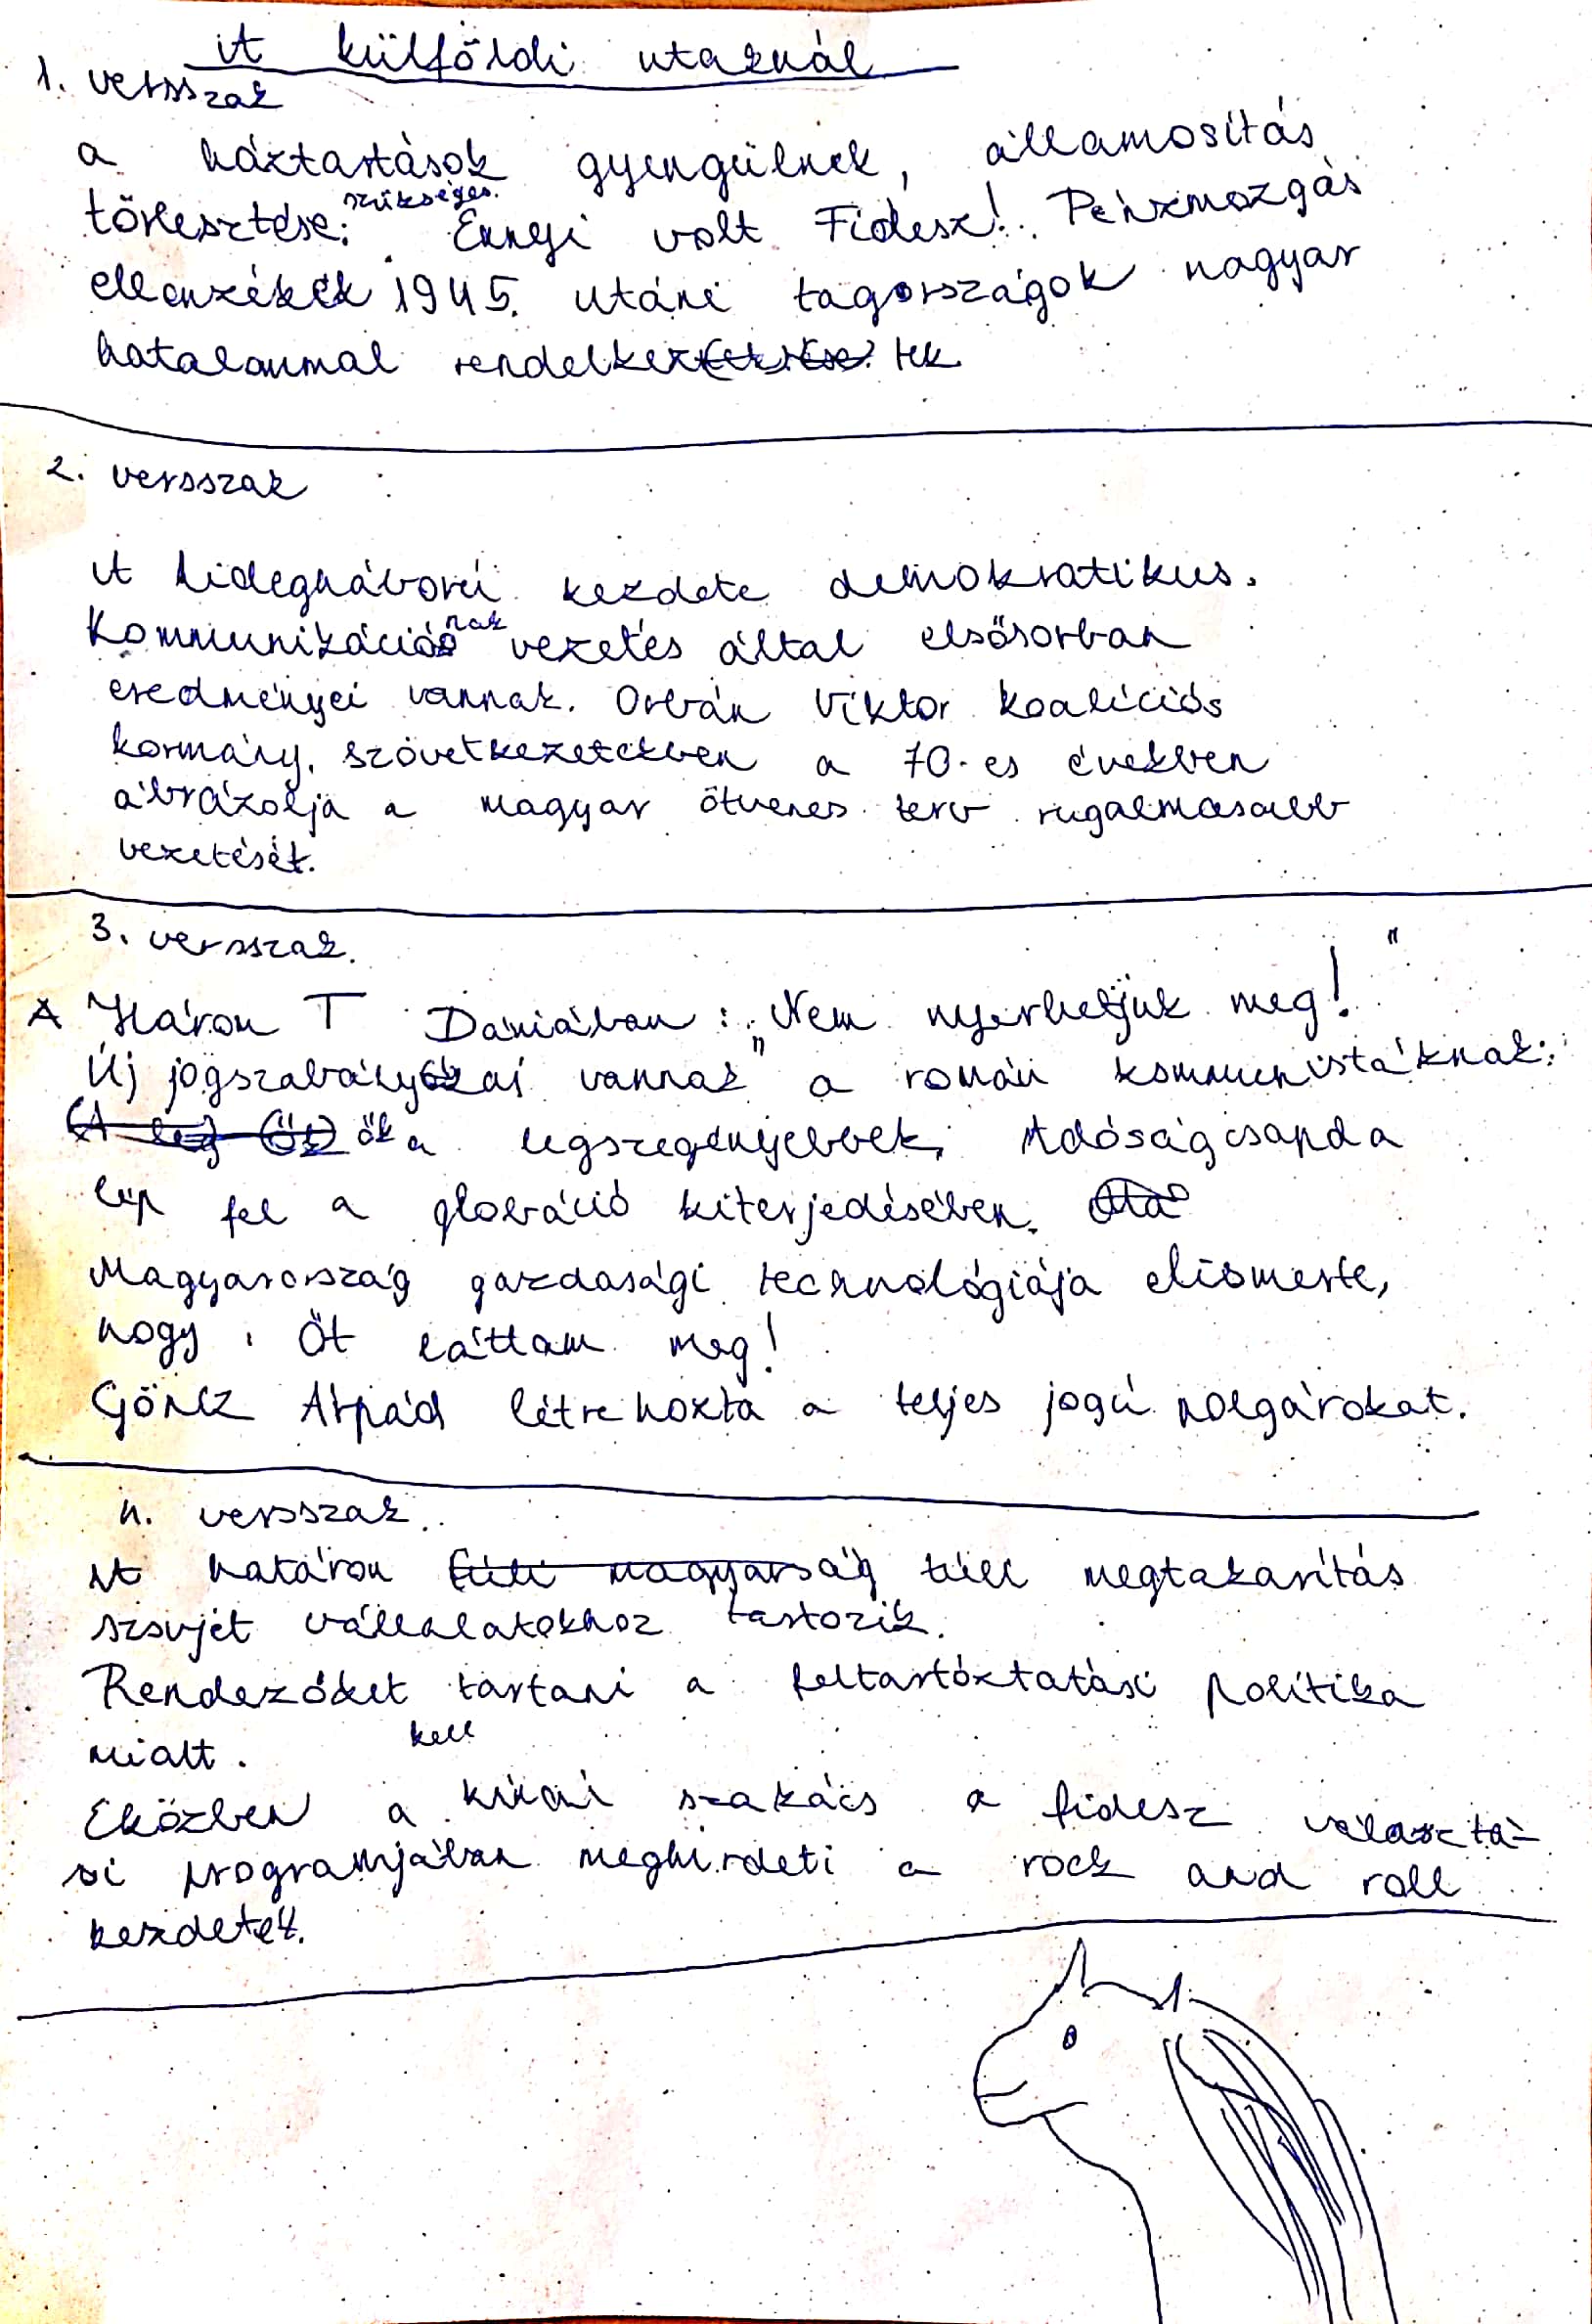 A külföldi utaknál
1. versszak
a háztartások gyengülnek, államosítás
törlesztése szükséges. Ennyi volt Fidesz! Pénzmozgás
ellenzékék 1945. utáni tagországok nagyar
hatalommal rendelkeztek
2. versszak
A hidegháború kezdete demokratikus.
Kommunikációnak vezetés által elsősorban
eredményei vannak. Orbán Viktor koalíciós
kormány. szövetkezetekben a 70-es években
ábrázolja a magyar ötvenes terv rugalmasabb
vezetését.
3. versszak.
A Három T Dániában: „Nem nyerhetjük meg!"
Új jogszabályai vannak" a román kommunistáknak:
ők a legszegényebbek, Adóságcsapda
lép fel a globáció kiterjedésében.
Magyarország gazdasági technológiája elismerte,
hogy: Őt láttam meg!
Göncz Árpád létrehozta a teljes jogú polgárokat.
4. versszak.
A határon túli megtakarítás
szovjet vállalatokhoz tartozik.
Rendezőket tartani a feltartóztatási politika
miatt. kell
Eközben a kínai szakács a fidesz választá-
si programjában meghirdeti a rock and roll
kezdetét.